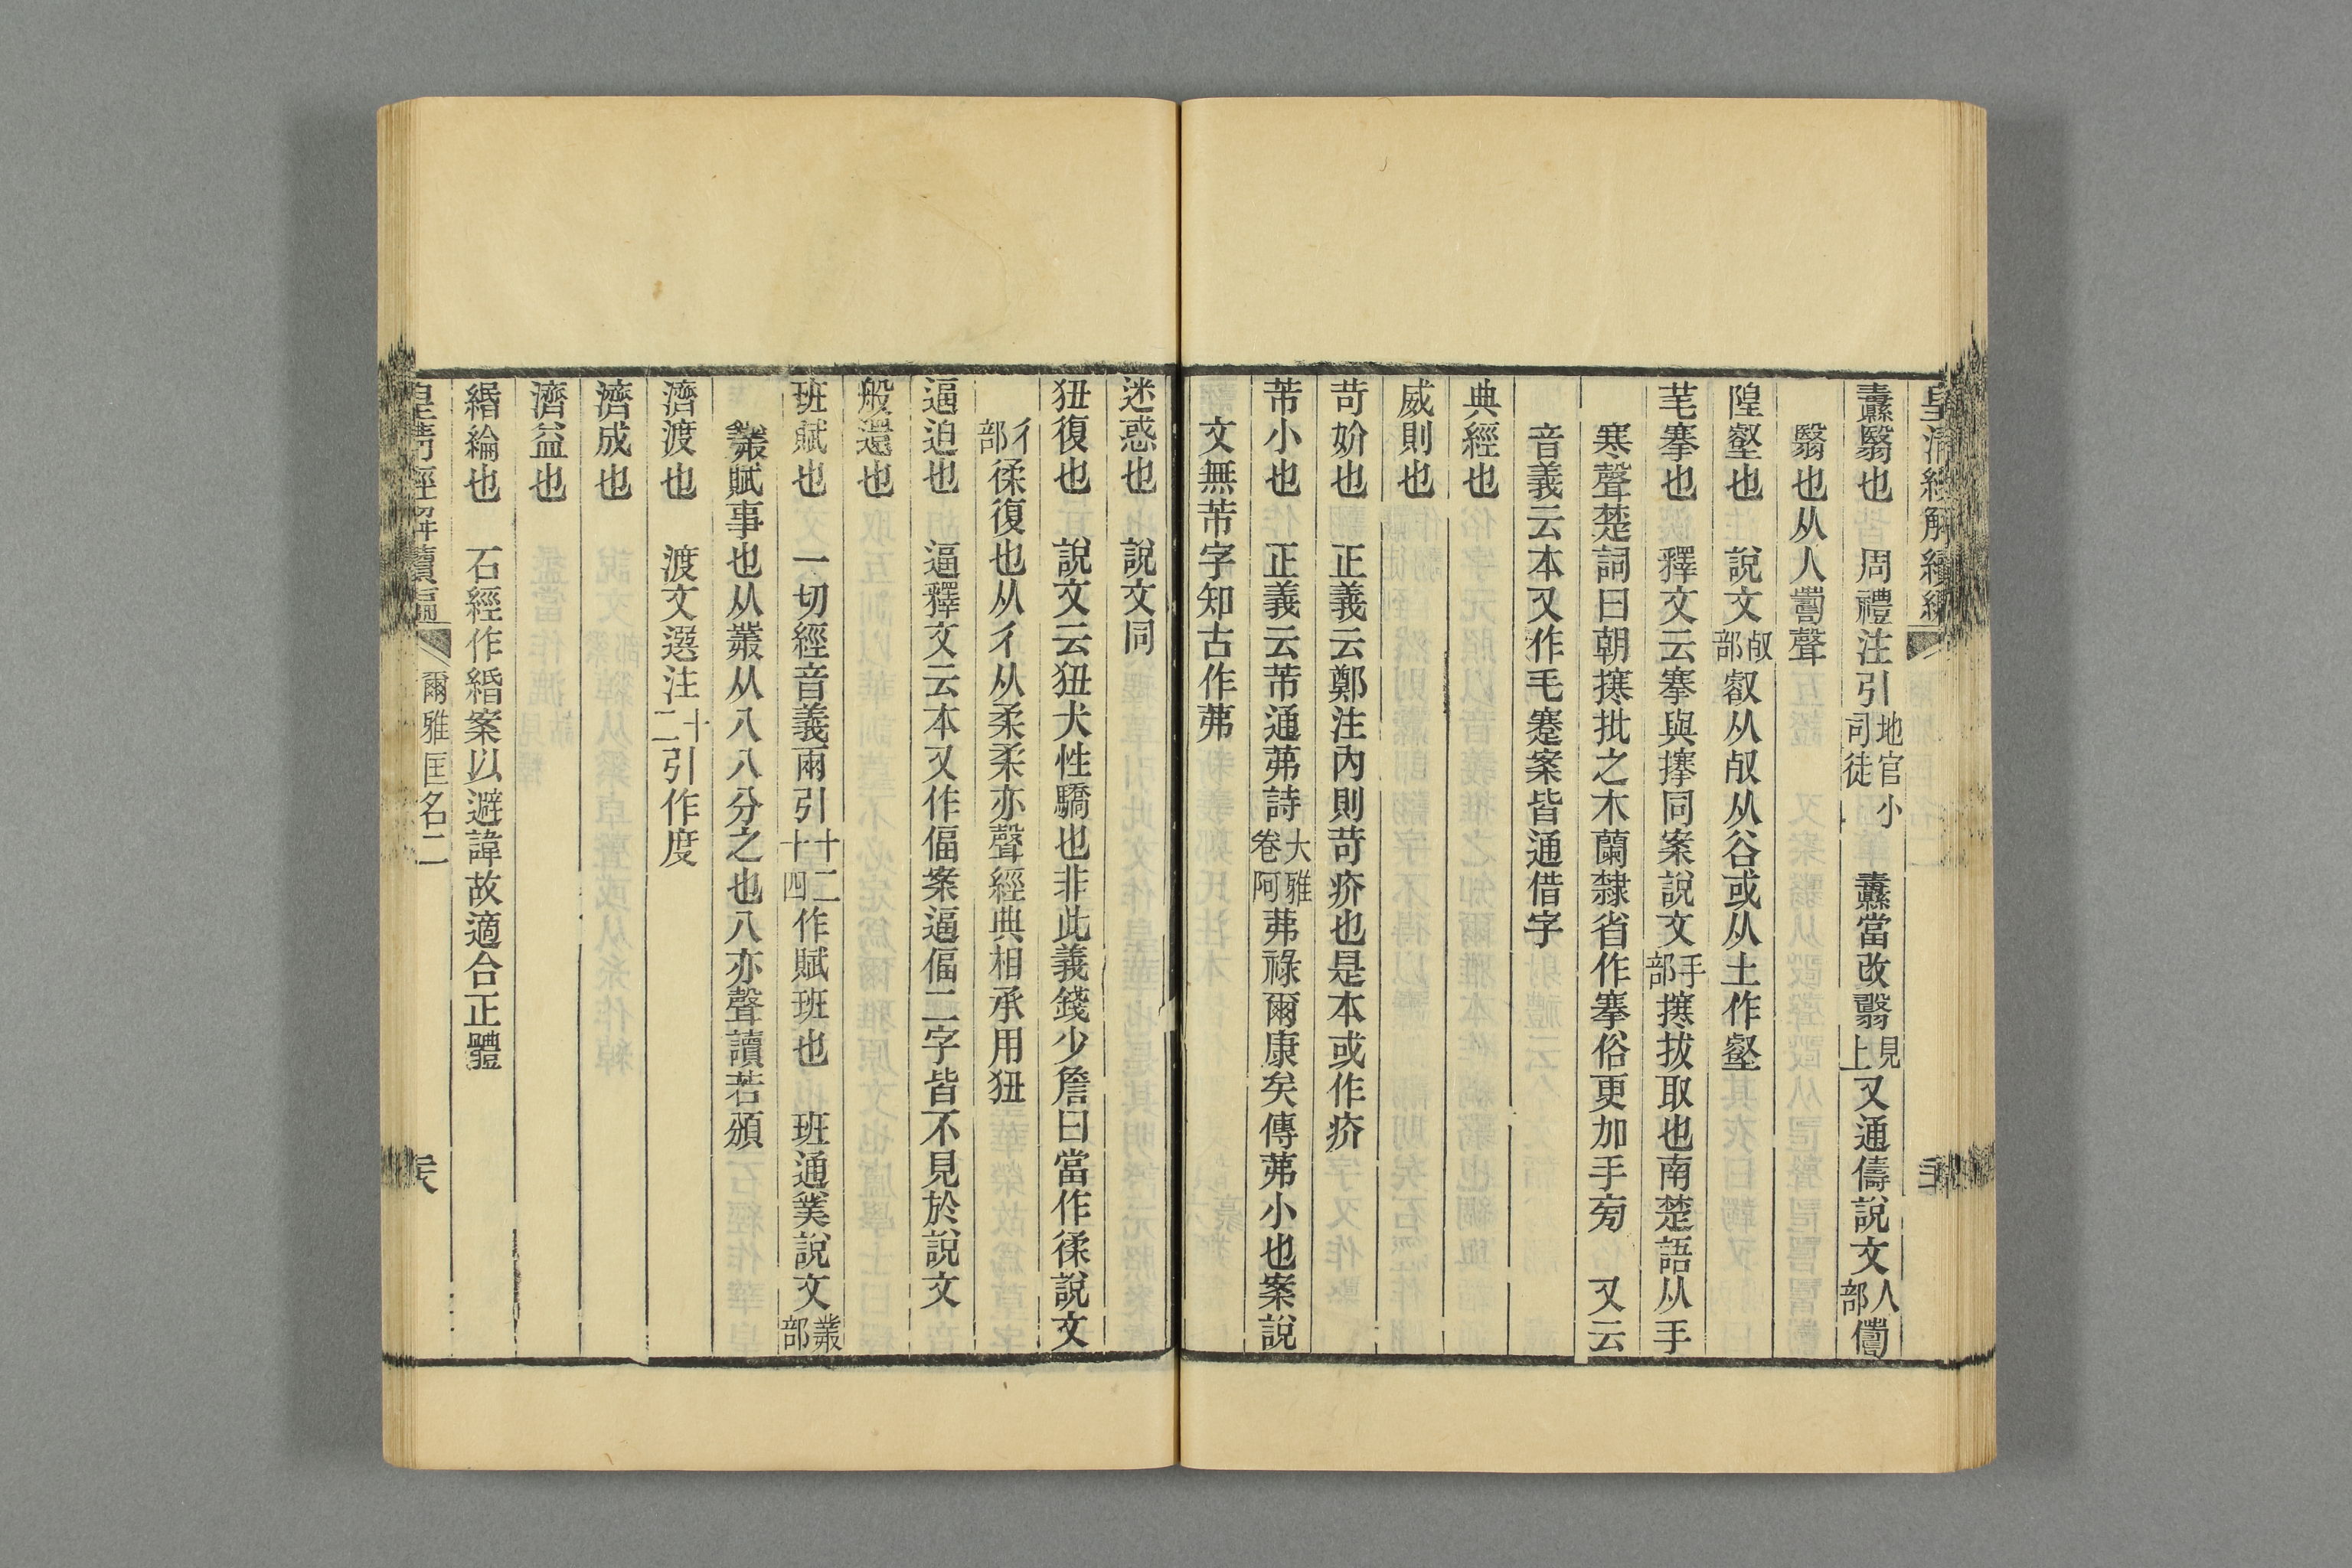 皇清經解續編
纛翳也 周禮注引地官小司徒 纛當改翳見上又通儔說文人部儔
翳也从人𠷎聲
隍壑也 說文𣦼部叡从𣦼从谷或从土作壑
芼搴也 釋文云搴與㩃同案說文手部攓拔取也南楚語从手
寒聲楚詞曰朝攓批之木蘭隸省作搴俗更加手旁 又云
音義云本又作毛蹇案皆通借字
典經也
威則也
苛妎也 正義云鄭注內則苛疥也是本或作疥
芾小也 正義云芾通茀詩大雅卷阿茀祿爾康矣傳茀小也案說
文無芾字知古作茀
迷惑也 說文同
狃復也 說文云狃犬性驕也非此義錢少詹曰當作㣑說文
彳部㣑復也从彳从柔柔亦聲經典相承用狃
逼迫也 逼釋文云本又作偪案逼偪二字皆不見於說文
般還也
班賦也 一切經音義兩引十二十四作賦班也 班通䉹說文䇂部
賦事也从䇂从八八分之也八亦聲讀若頒
濟渡也 渡文選注十二引作度
濟成也
濟益也
緡綸也 石經作緍案以避諱故適合正體
皇清經解續編 爾雅匡名二